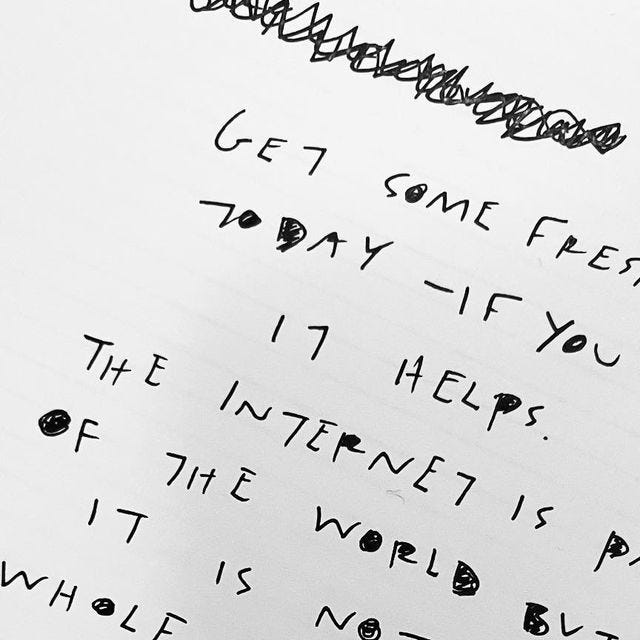 GET SOME FRES
TODAY - IF YOU
IT HELPS.
THE INTERNET IS PA
OF THE WORLD BUT
IT IS NOT
WHOLE